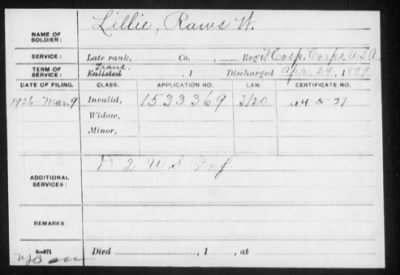 NAME OF SOLDIER: Lillie, Raws W.
SERVICE: Late rank, Co. , Reg't Hosp. Corps, U.S.A
TERM OF SERVICE: Enlisted , 1 Discharged Apr. 29, 1899
DATE OF FILING. CLASS. APPLICATION NO. LAW CERTIFICATE NO.
1926 Mar. 9 Invalid, 1533369 3/20
Widow,
Minor,
ADDITIONAL SERVICES: 2 U S Inf
REMARKS:
Died , 1 , at